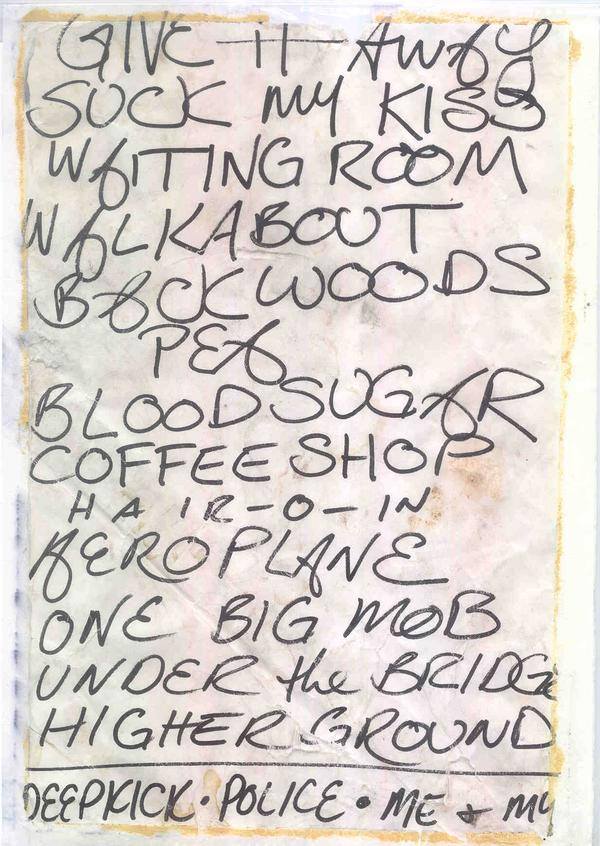 GIVE IT AWAY
SUCK MY KISS
WAITING ROOM
WALKABOUT
BACKWOODS
PEA
BLOOD SUGAR
COFFEE SHOP
HAIR-O-IN
AEROPLANE
ONE BIG MOB
UNDER the BRIDGE
HIGHER GROUND
DEEPKICK • POLICE • ME + MY